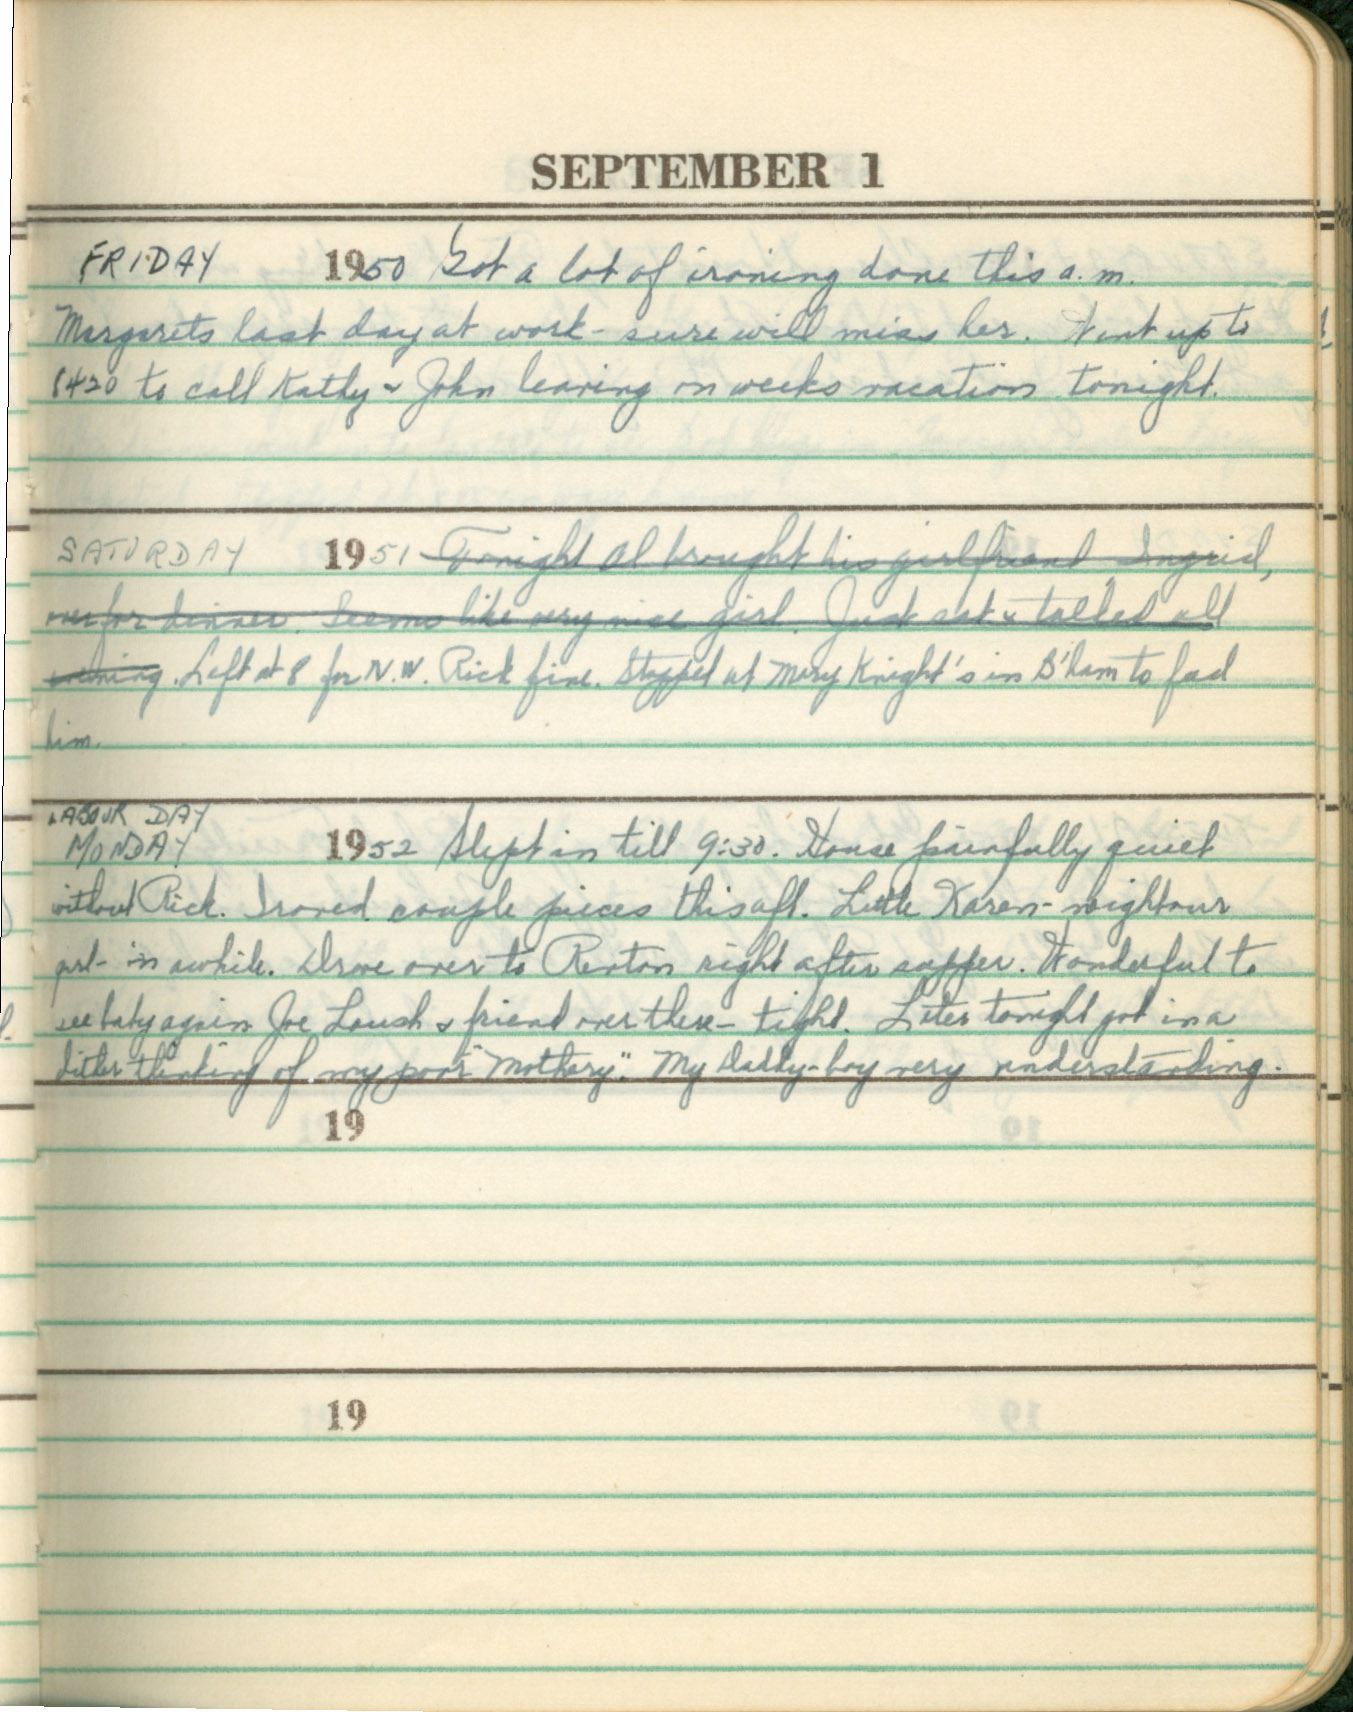 SEPTEMBER 1
FRIDAY 1950 Got a lot of ironing done this a.m.
Margarets last day at work - sure will miss her. Went up to
1420 to call Kathy & John leaving on weeks vacation tonight.
SATURDAY 1951 Tonight Al brought his girlfriend, Ingrid,
over for dinner. Seems like very nice girl. Just sat & talked all
evening. Left at 8 for N.W. Rick fine. Stopped at Mary Knight's in B'ham to feed
him.
LABOUR DAY
MONDAY 1952 Slept in till 9:30. House painfully quiet
without Rick. Ironed couple pieces this aft. Little Karen - neighbour
girl - in awhile. Drove over to Renton right after supper. Wonderful to
see baby again. Joe & friend over there - tight. Later tonight got in a
dither thinking of my poor "Mothery". My Daddy-boy very understanding.
19
19